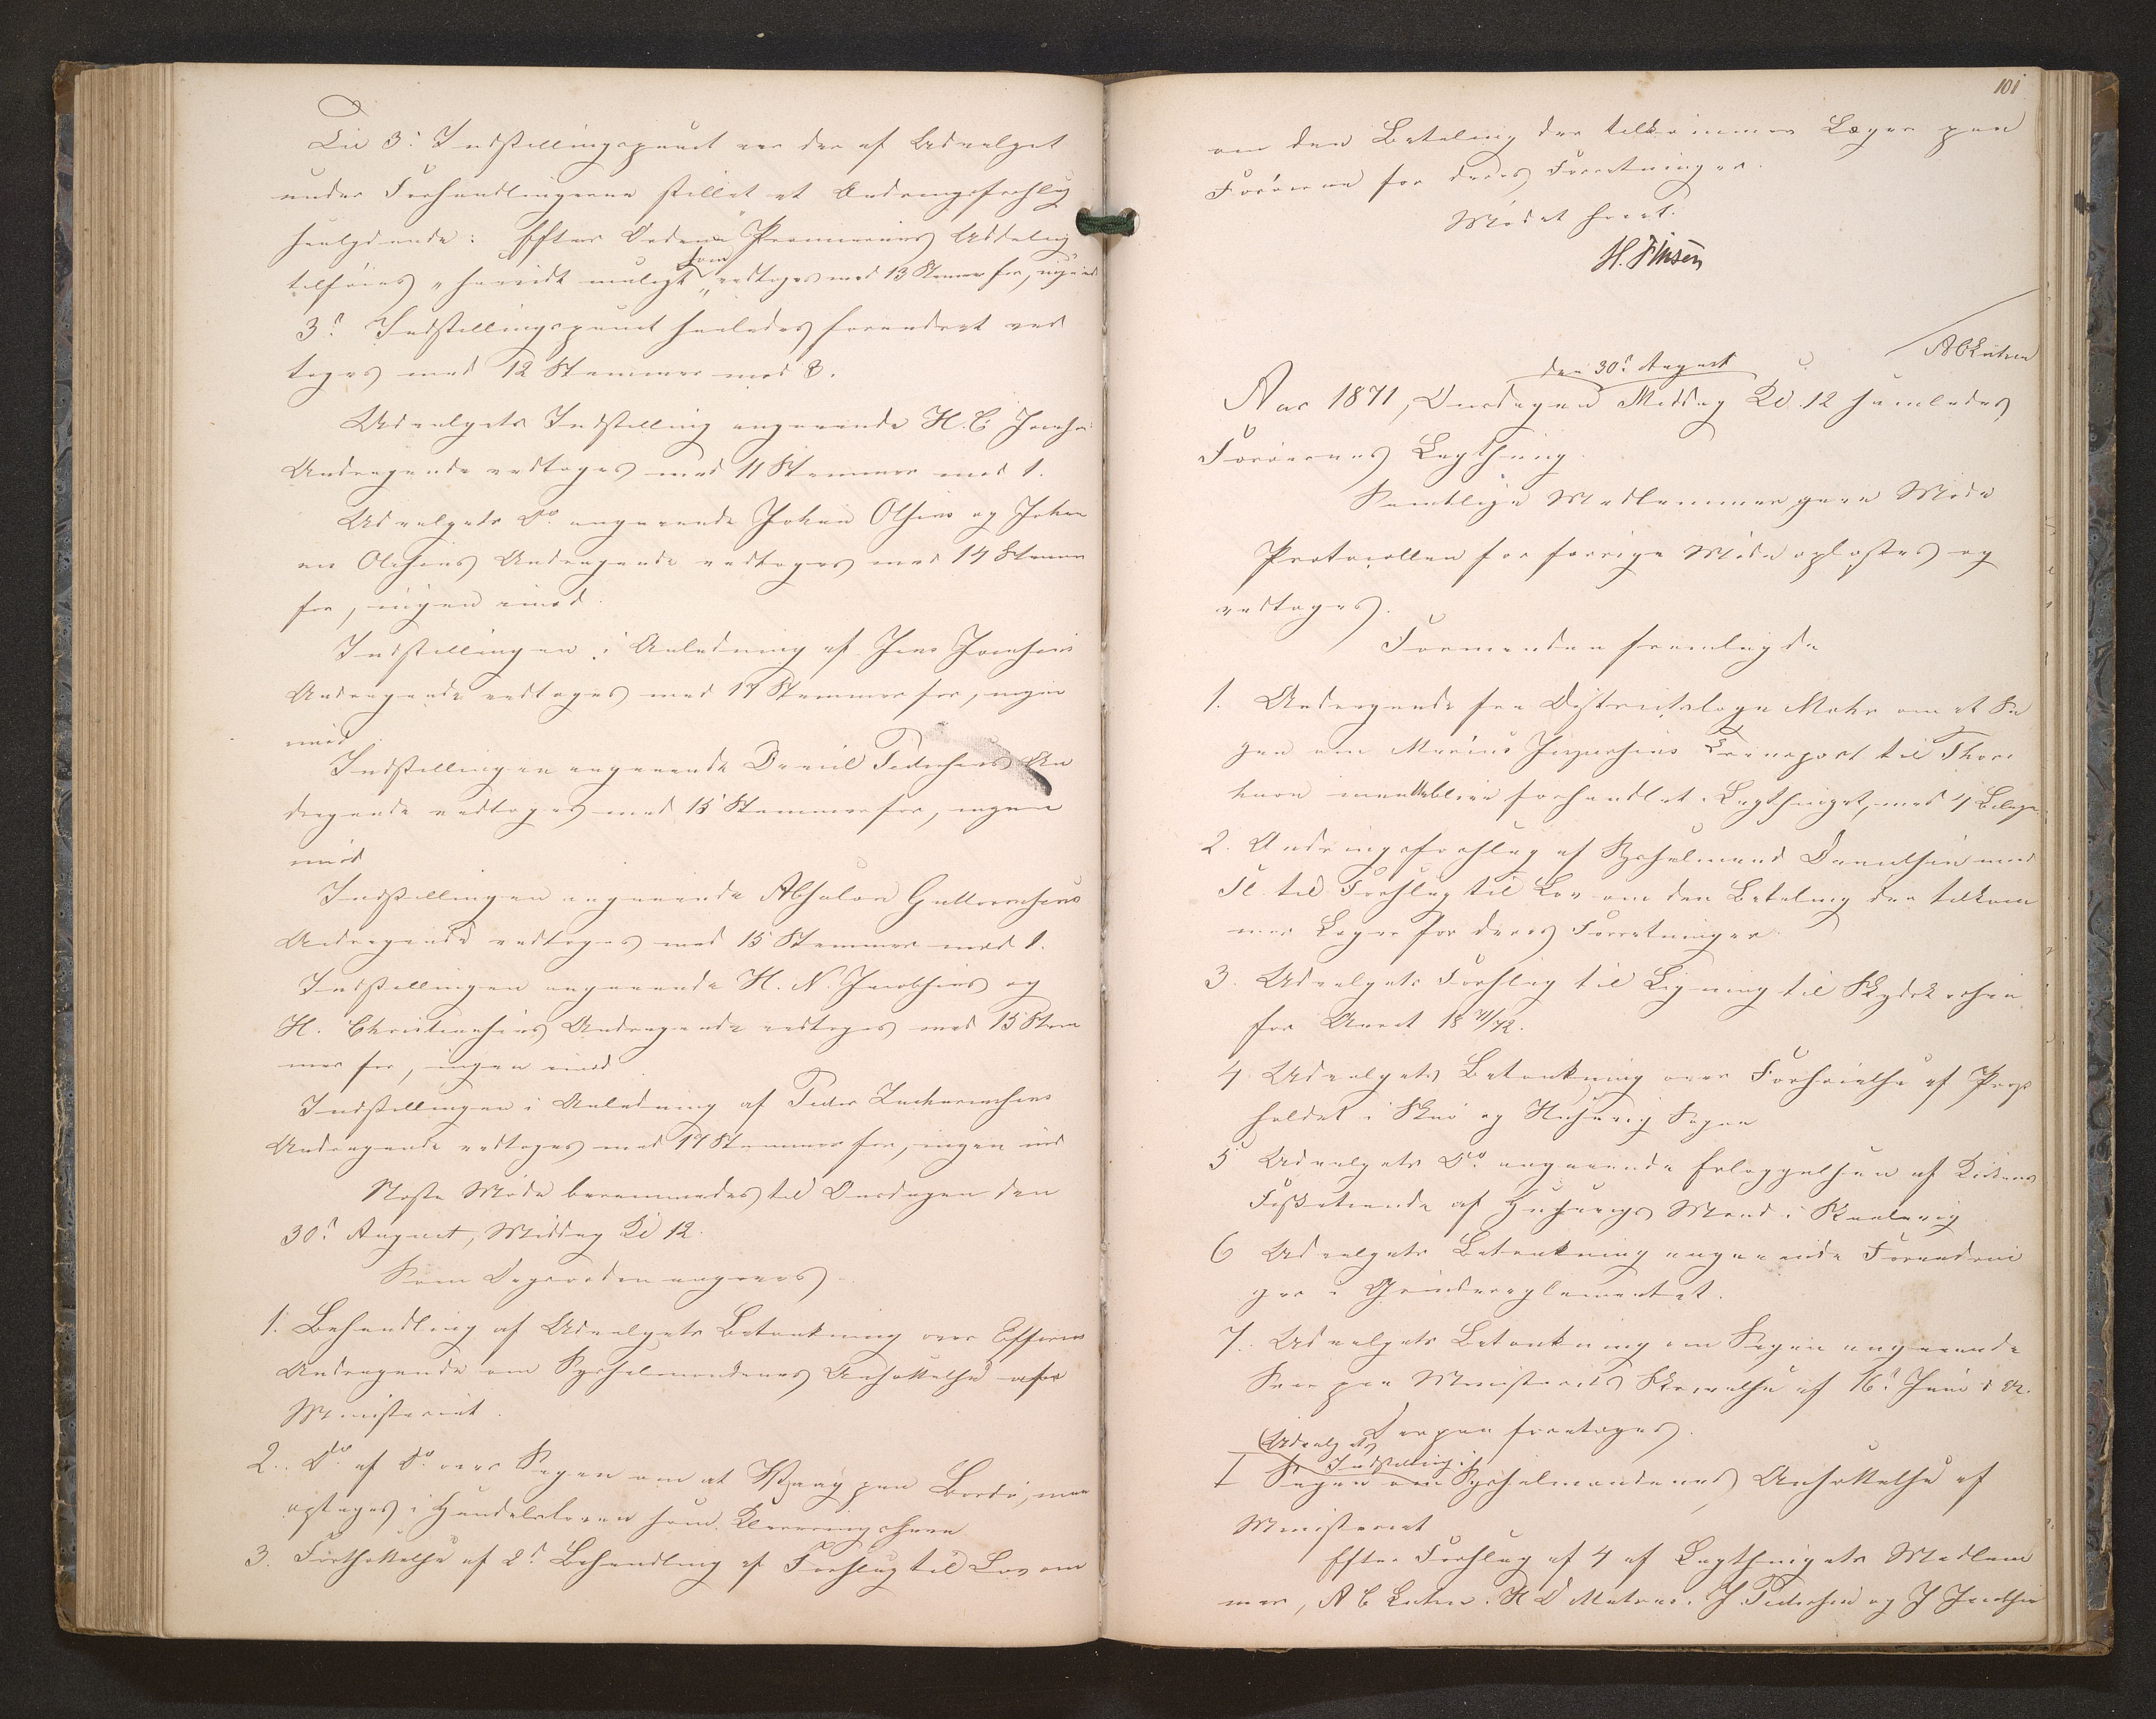 Til 3: Indstillingspunct var der af Udvalget
under Forhandlingerne stillet et Ændringsforslag
saalydende: Efter Ordene "Præmiernes Uddeling"
tilføies "saavidt muligt" som vedtoges med 13 Stemmer for, ingen imod
3d. Indstillingspunct saaledes forandret ved
toges med 12 Stemmer mod 3.
Udvalgets Indstilling angaaende H. C. Joensens
Andragende vedtoges med 11 Stemmer mod 1.
Udvalgets Do. angaaende Johan Olsens og Johan
ne Olesens Andragende vedtoges med 14 Stemmer
for, ingen imod.
Indstillingen i Anledning af Jens Joensens
Andragende vedtoges med 17 Stemmer for, ingen
imod.
Indstillingen angaaende Daniel Pedersens An
dragende vedtoges med 15 Stemmer for, ingen
imod
Indstillingen angaaende Absalon Guttormsens
Andragende vedtoges med 15 Stemmer mod 1.
Indstillingen angaaende H. N. Jacobsens og
H. Christiansens Andragende vedtoges med 15 Stem
mer for, ingen imod
Indstillingen i Anledning af Peder Zachariasens
Andragende vedtoges med 17 Stemmer for, ingen imod
Næste Møde berammedes til Onsdagen den
30d. August, Middag Kl 12.
Som Dagsorden angaves
1. Behandling af Udvalgets Betænkning over
Andragende om Sysselmændenes Ansættelse af
Ministeriet.
2. Do. af Do. over Sagen om at Vaag paa Bordø, maa
optages i Handelsloven som Klareringshavn
3. Fortsættelse af 2d. Behandling af Forslag til Lov om
101
om den Betaling der tilkommer Læger paa
Færøerne for deres Forretninger.
Mødet hævet.
H. Finsen
den 30d. August
Aar 1871, Onsdagen Middag Kl. 12 samledes
Færøernes Lagthing.
Samtlige Medlemmer gave Møde
Protocollen for forrige Møde oplæstes og
vedtoges.
Formanden fremlagde
1. Andragende fra Districtslæge Mohr om at Sa
gen om Marius Transport til Thors
havn maatte blive forhandlet i Lagthinget, med 4 Bilag
2. Ændringsforslag af Sysselmand Danielsen med
Fl. til Forslag til Lov om den Betaling der tilkom
mer Læger for deres Forretninger
3. Udvalgets Forslag til Ligning til Skydskassen
for Aaret 18 71/72.
4 Udvalgets Betænkning over Forhøielse af
holdet i Skuø og Husevig Sogne
5 Udvalgets Do. angaaende Erlæggelsen af Kirkens
Fisketiende af Husevigs Mænd i Skaalevig
6 Udvalgets Betænkning angaaende Forandrin
ger i Grindereglementet.
7. Udvalgets Betænkning om Sagen angaaende
Svar paa Ministeriets Skrivelse af 16d. Juni d. A.
Derpaa foretoges.
Udvalgets
Indstilling i
I Sagen om Sysselmændenes Ansættelse af
Ministeriet
Efter Forslag af 4 af Lagthingets Medlem
mer, A C Lützen, H O Matras, J. Pedersen og J Joensen